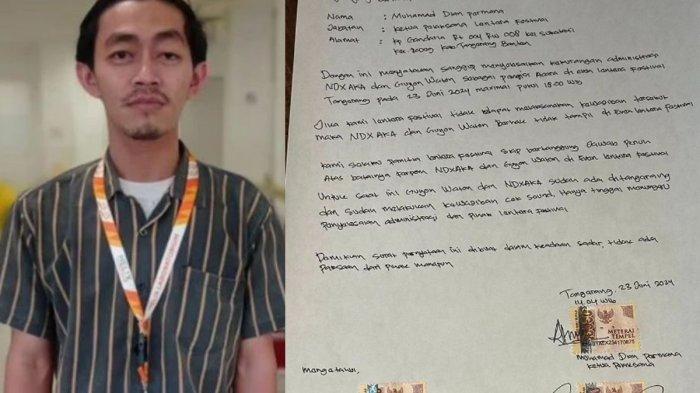 Nama : Muhamad Dian Parmana
Jabatan : Ketua Pelaksana Lentera Festival
Alamat : KP Gandaria Rt 004 Rw 008 Kel
Kec Kab Tangerang Banten
Dengan ini menyatakan sanggup menyelesaikan kekurangan administrasi
NDXAKA dan Guyon Waton sebagai pengisi Acara di even lentera Festival
Tangerang pada 23 Juni 2024 maximal Pukul 18:00 WIB
Jika kami lentera Festival tidak dapat melaksanakan kewajiban tersebut
maka NDXAKA dan Guyon Waton Berhak tidak tampil di Even lentera Festival
Kami selaku Panitia lentera Festival siap bertanggung Jawab Penuh
Atas batalnya Perform NDXAKA dan Guyon Waton di Even lentera Festival
Untuk saat ini Guyon Waton dan NDXAKA sudah ada ditangerang
dan sudah melakukan kewajiban cek sound, Hanya tinggal menunggu
Penyelesaian administrasi dari Pihak lentera Festival
Demikian surat pernyataan ini dibuat dalam keadaan sadar, tidak ada
Paksaan dari Pihak manapun
Tangerang, 23 Juni 2024
14.04 WIB
METERAI
TEMPEL
Muhamad Dian Parmana
Ketua Pelaksana
Mengetahui,